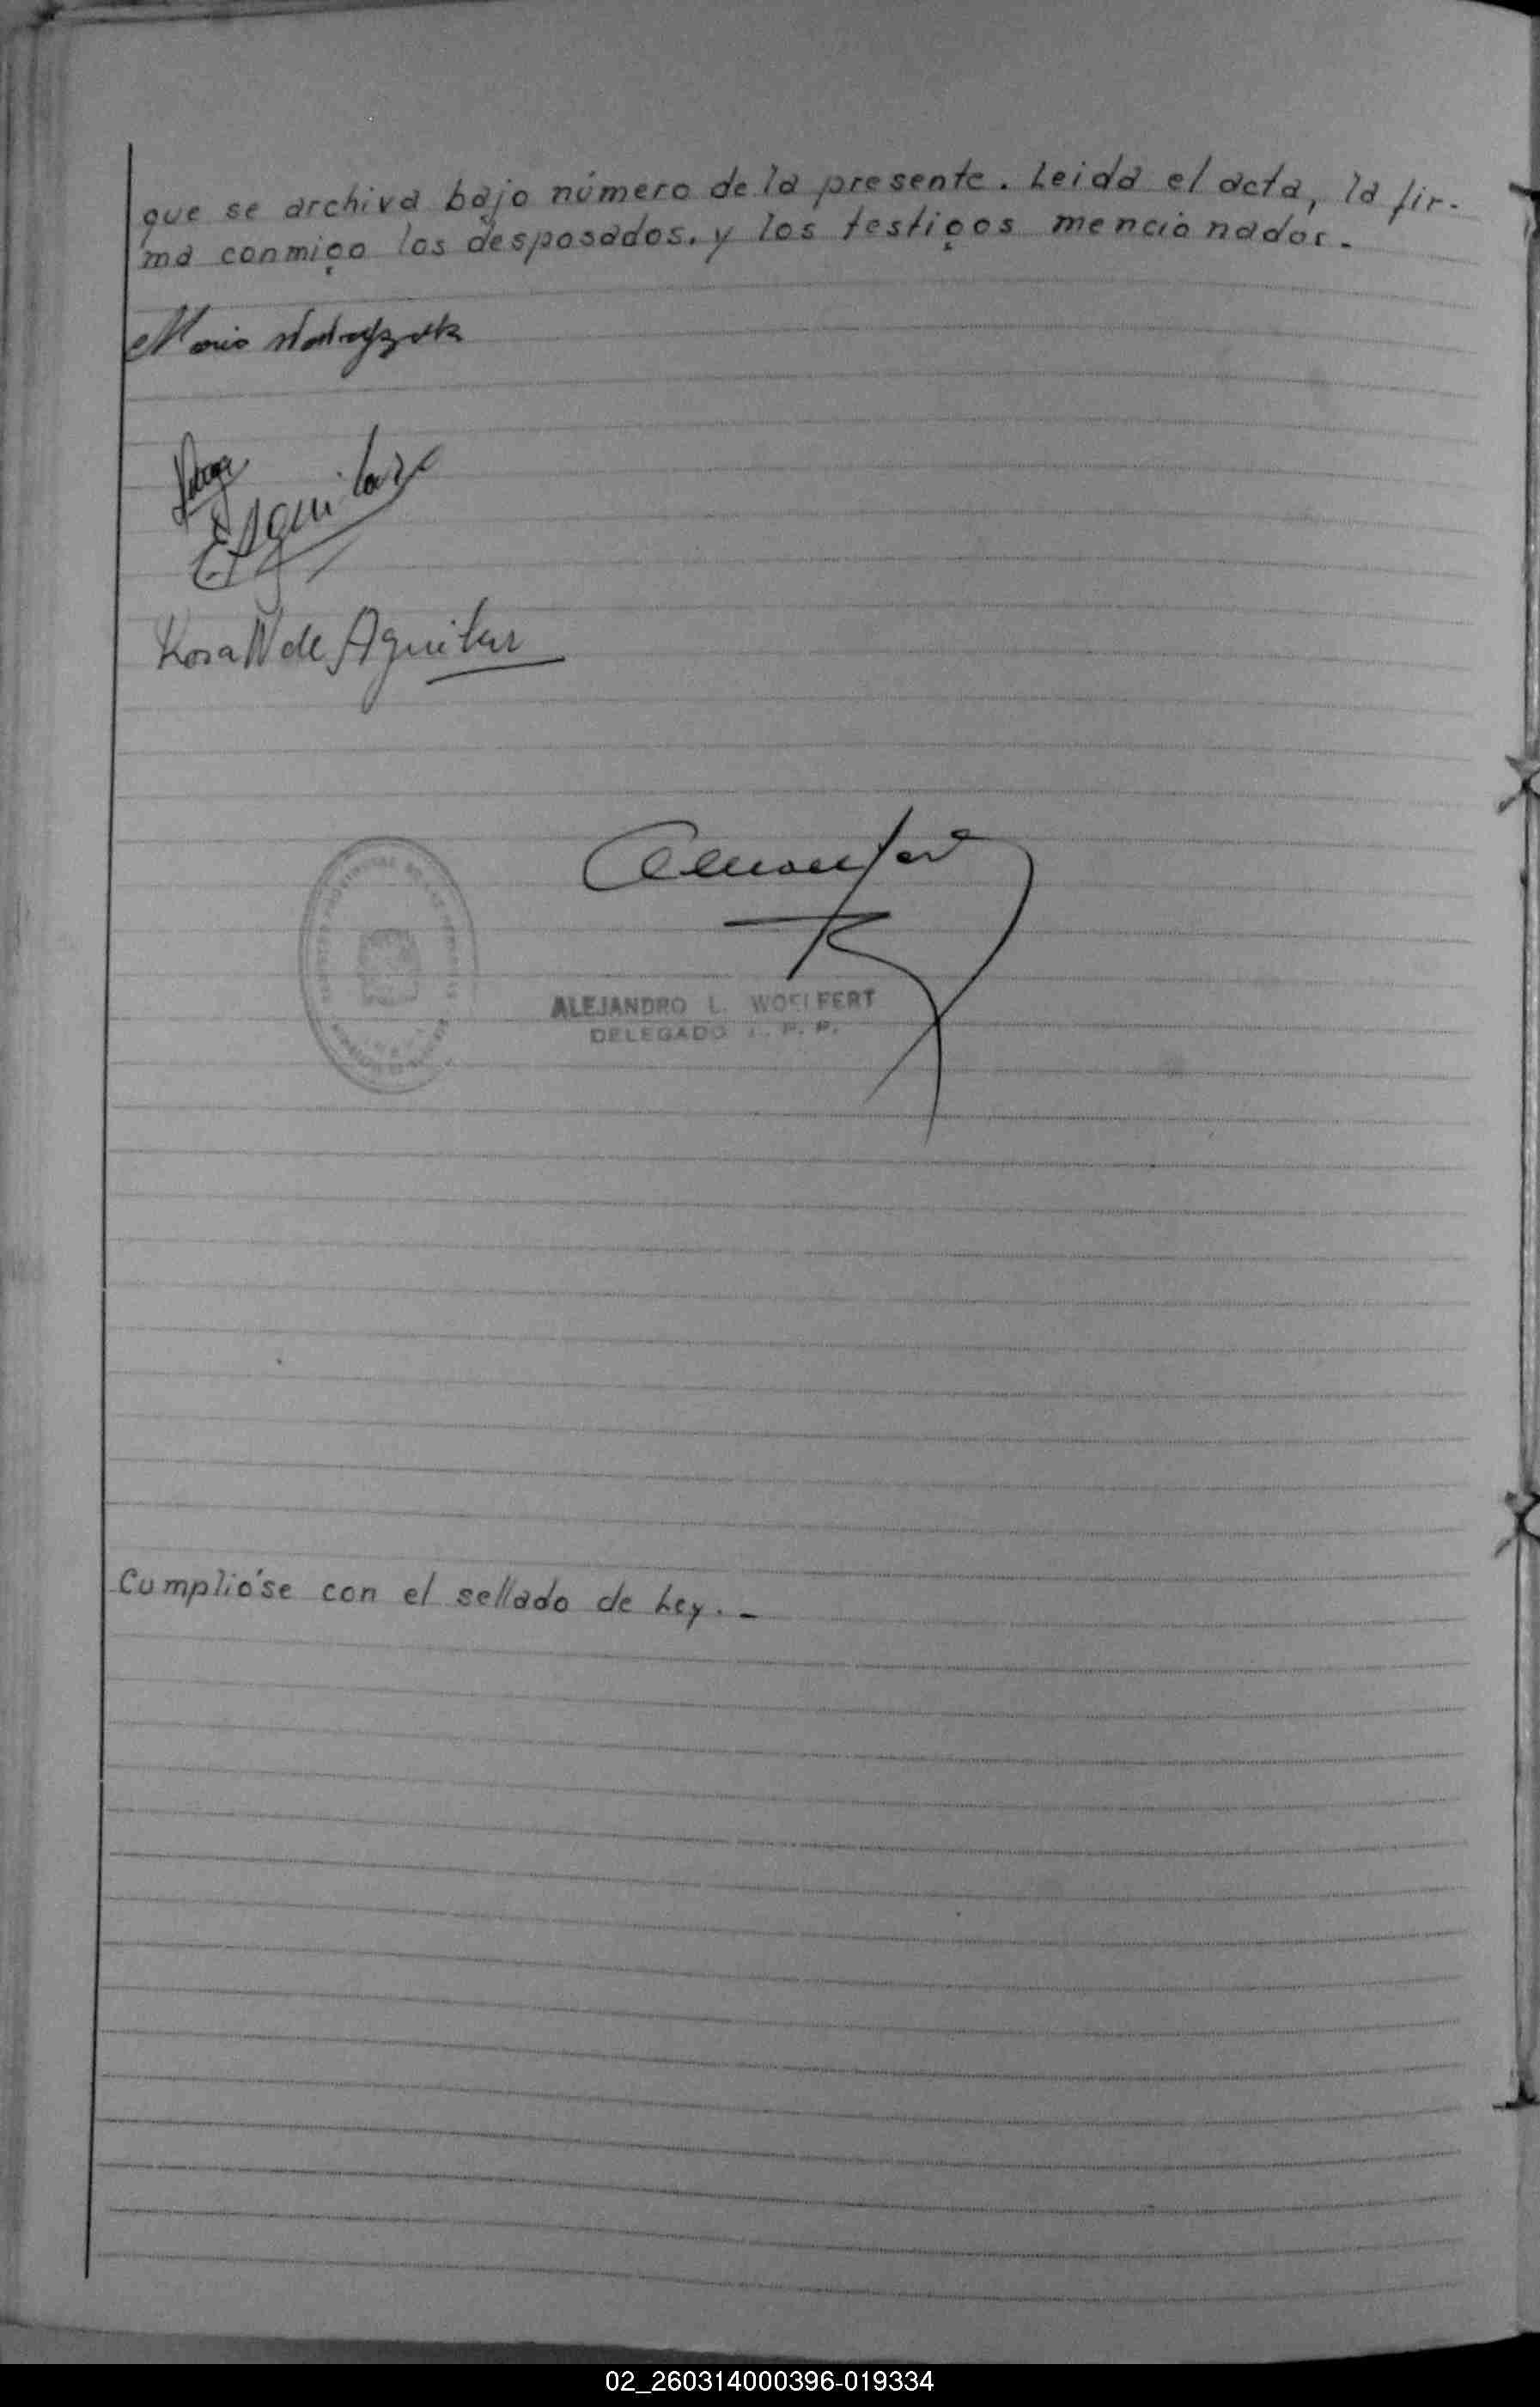 que se archiva bajo número de la presente. Leida el acta, la fir-
ma conmigo los desposados. y los testigos mencionados.-
E Aguilar
Rosa N de Aguilar
ALEJANDRO L. WOELFERT
DELEGADO
Cumplióse con el sellado de Ley.-
02_260314000396-019334